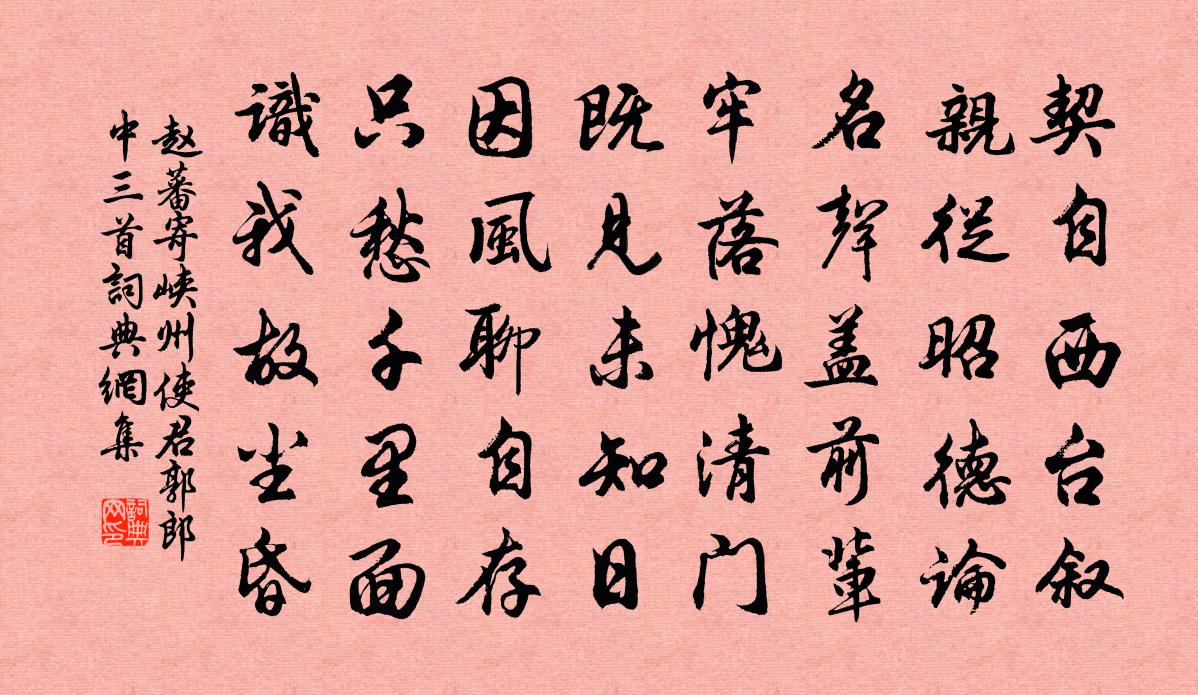 契自西台叙
親從昭德論
名聲盖前輩
牢落愧清門
既見未知日
因風聊自存
只愁千里面
識我故尘昏
赵蕃寄峡州使君郭郎
中三首詞典網集
詞典网印